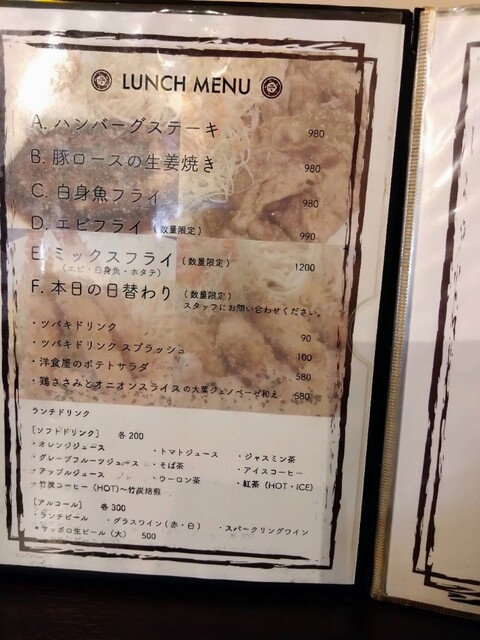 LUNCH MENU
A. ハンバーグステーキ 980
B. 豚ロースの生姜焼き 980
C. 白身魚フライ 980
D. エビフライ (数量限定) 990
E. ミックスフライ (数量限定) 1200
(エビ・白身魚・ホタテ)
F. 本日の日替わり (数量限定)
スタッフにお問い合わせください。
・ツバキドリンク 90
・ツバキドリンク スプラッシュ 100
・洋食屋のポテトサラダ 580
・鶏ささみとオニオンスライスの大葉ジェノベーゼ和え 580
ランチドリンク
[ソフトドリンク] 各200
・オレンジジュース ・トマトジュース ・ジャスミン茶
・グレープフルーツジュース ・そば茶 ・アイスコーヒー
・アップルジュース ・ウーロン茶 ・紅茶 (HOT・ICE)
・竹炭コーヒー (HOT)〜竹炭焙煎
[アルコール] 各300
・ランチビール ・グラスワイン (赤・白) ・スパークリングワイン
*サッポロ生ビール (大) 500